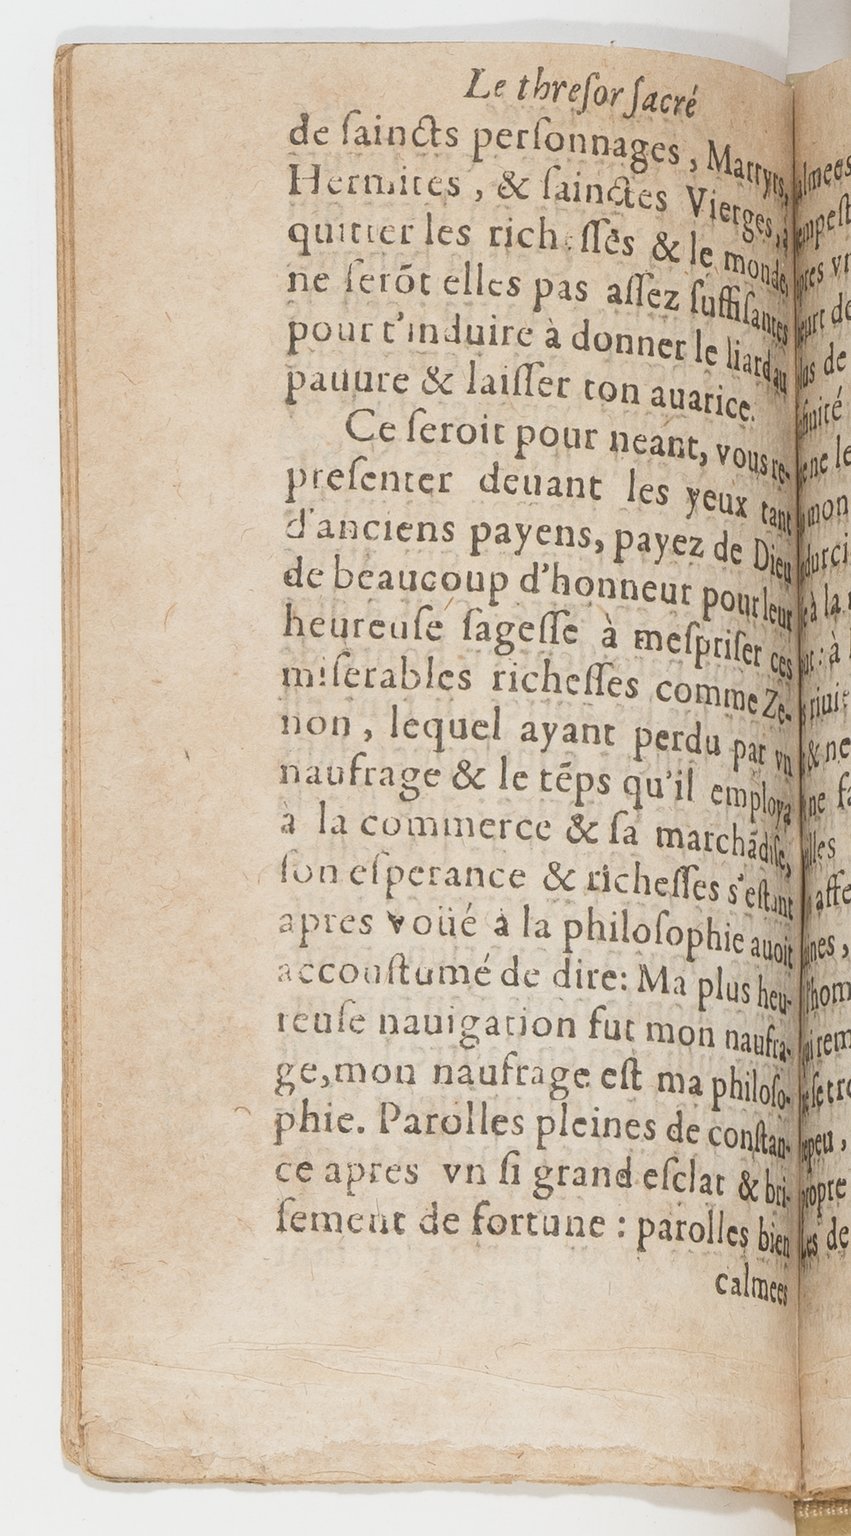 Le threſor ſacré
de ſaincts perſonnages, Martyrs,
Hermites, & ſainctes Vierges, à
quitter les richeſſes & le monde,
ne ſerõt elles pas aſſez ſuffiſantes
pour t'induire à donner le liard au
pauure & laiſſer ton auarice.
Ce ſeroit pour neant, vous re-
preſenter deuant les yeux tant
d'anciens payens, payez de Dieu
de beaucoup d'honneur pour leur
heureuſe ſageſſe à meſpriſer ces
miſerables richeſſes comme Ze-
non, lequel ayant perdu par vn
naufrage & le tẽps qu'il employa
à la commerce & ſa marchãdiſe,
ſon eſperance & richeſſes s'eſtant
apres voüé à la philoſophie auoit
accouſtumé de dire: Ma plus heu-
reuſe nauigation fut mon naufra-
ge, mon naufrage eſt ma philoſo-
phie. Parolles pleines de conſtan-
ce apres vn ſi grand eſclat & bri-
ſement de fortune : parolles bien
calmees